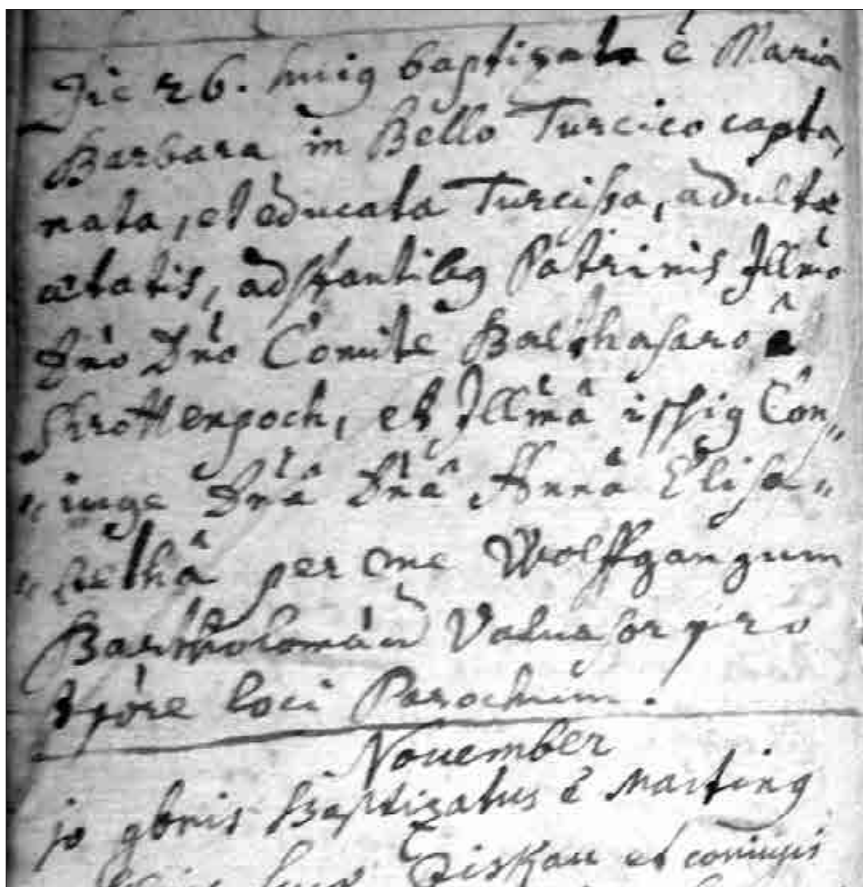 Die 26. huig baptizata ē Maria
Barbara in Bello Turcico capta,
nata, et educata Turcissa, adultæ
ætatis, adstantibg Patrinis Illmo
Dno Dno Comite Balthasaro â
Shrottenpoch, et Illmâ ipsig Con„
„iuge Dnâ Dnâ Annâ Elisa„
„bethâ per me Wolffgangum
Bartholomæū Valuasor pro
tpore loci Parochum.
November
10 9bris Baptizatus ē Marting
et coniugis